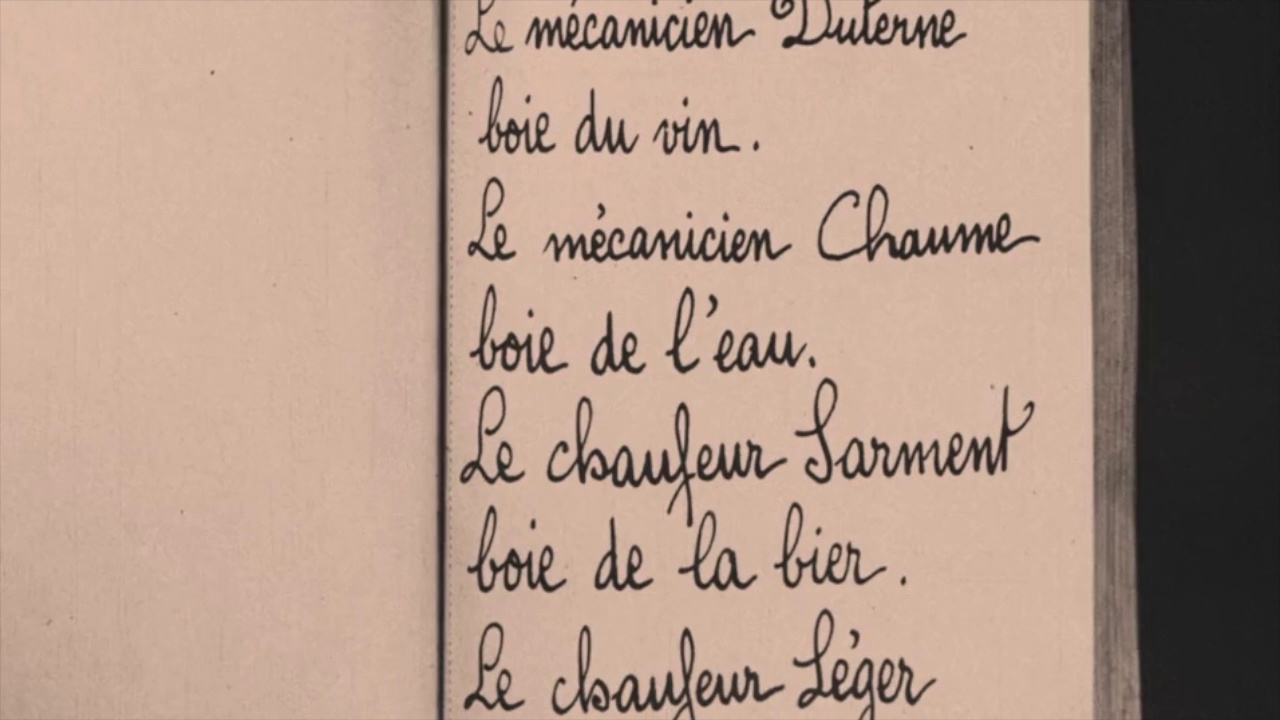 Le mécanicien Duterne
boie du vin.
Le mécanicien Chaume
boie de l'eau.
Le chaufeur Sarment
boie de la bier.
Le chaufeur Léger